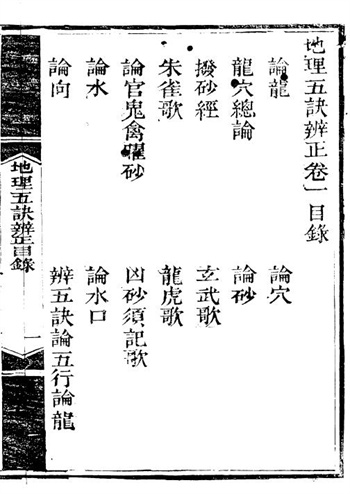 地理五訣辨正卷一目錄
論龍 論穴
龍穴總論 論砂
撥砂經 玄武歌
朱雀歌 龍虎歌
論官鬼禽曜砂 凶砂須記歌
論水 論水口
論向 辨五訣論五行論龍
地理五訣辨正目錄 一